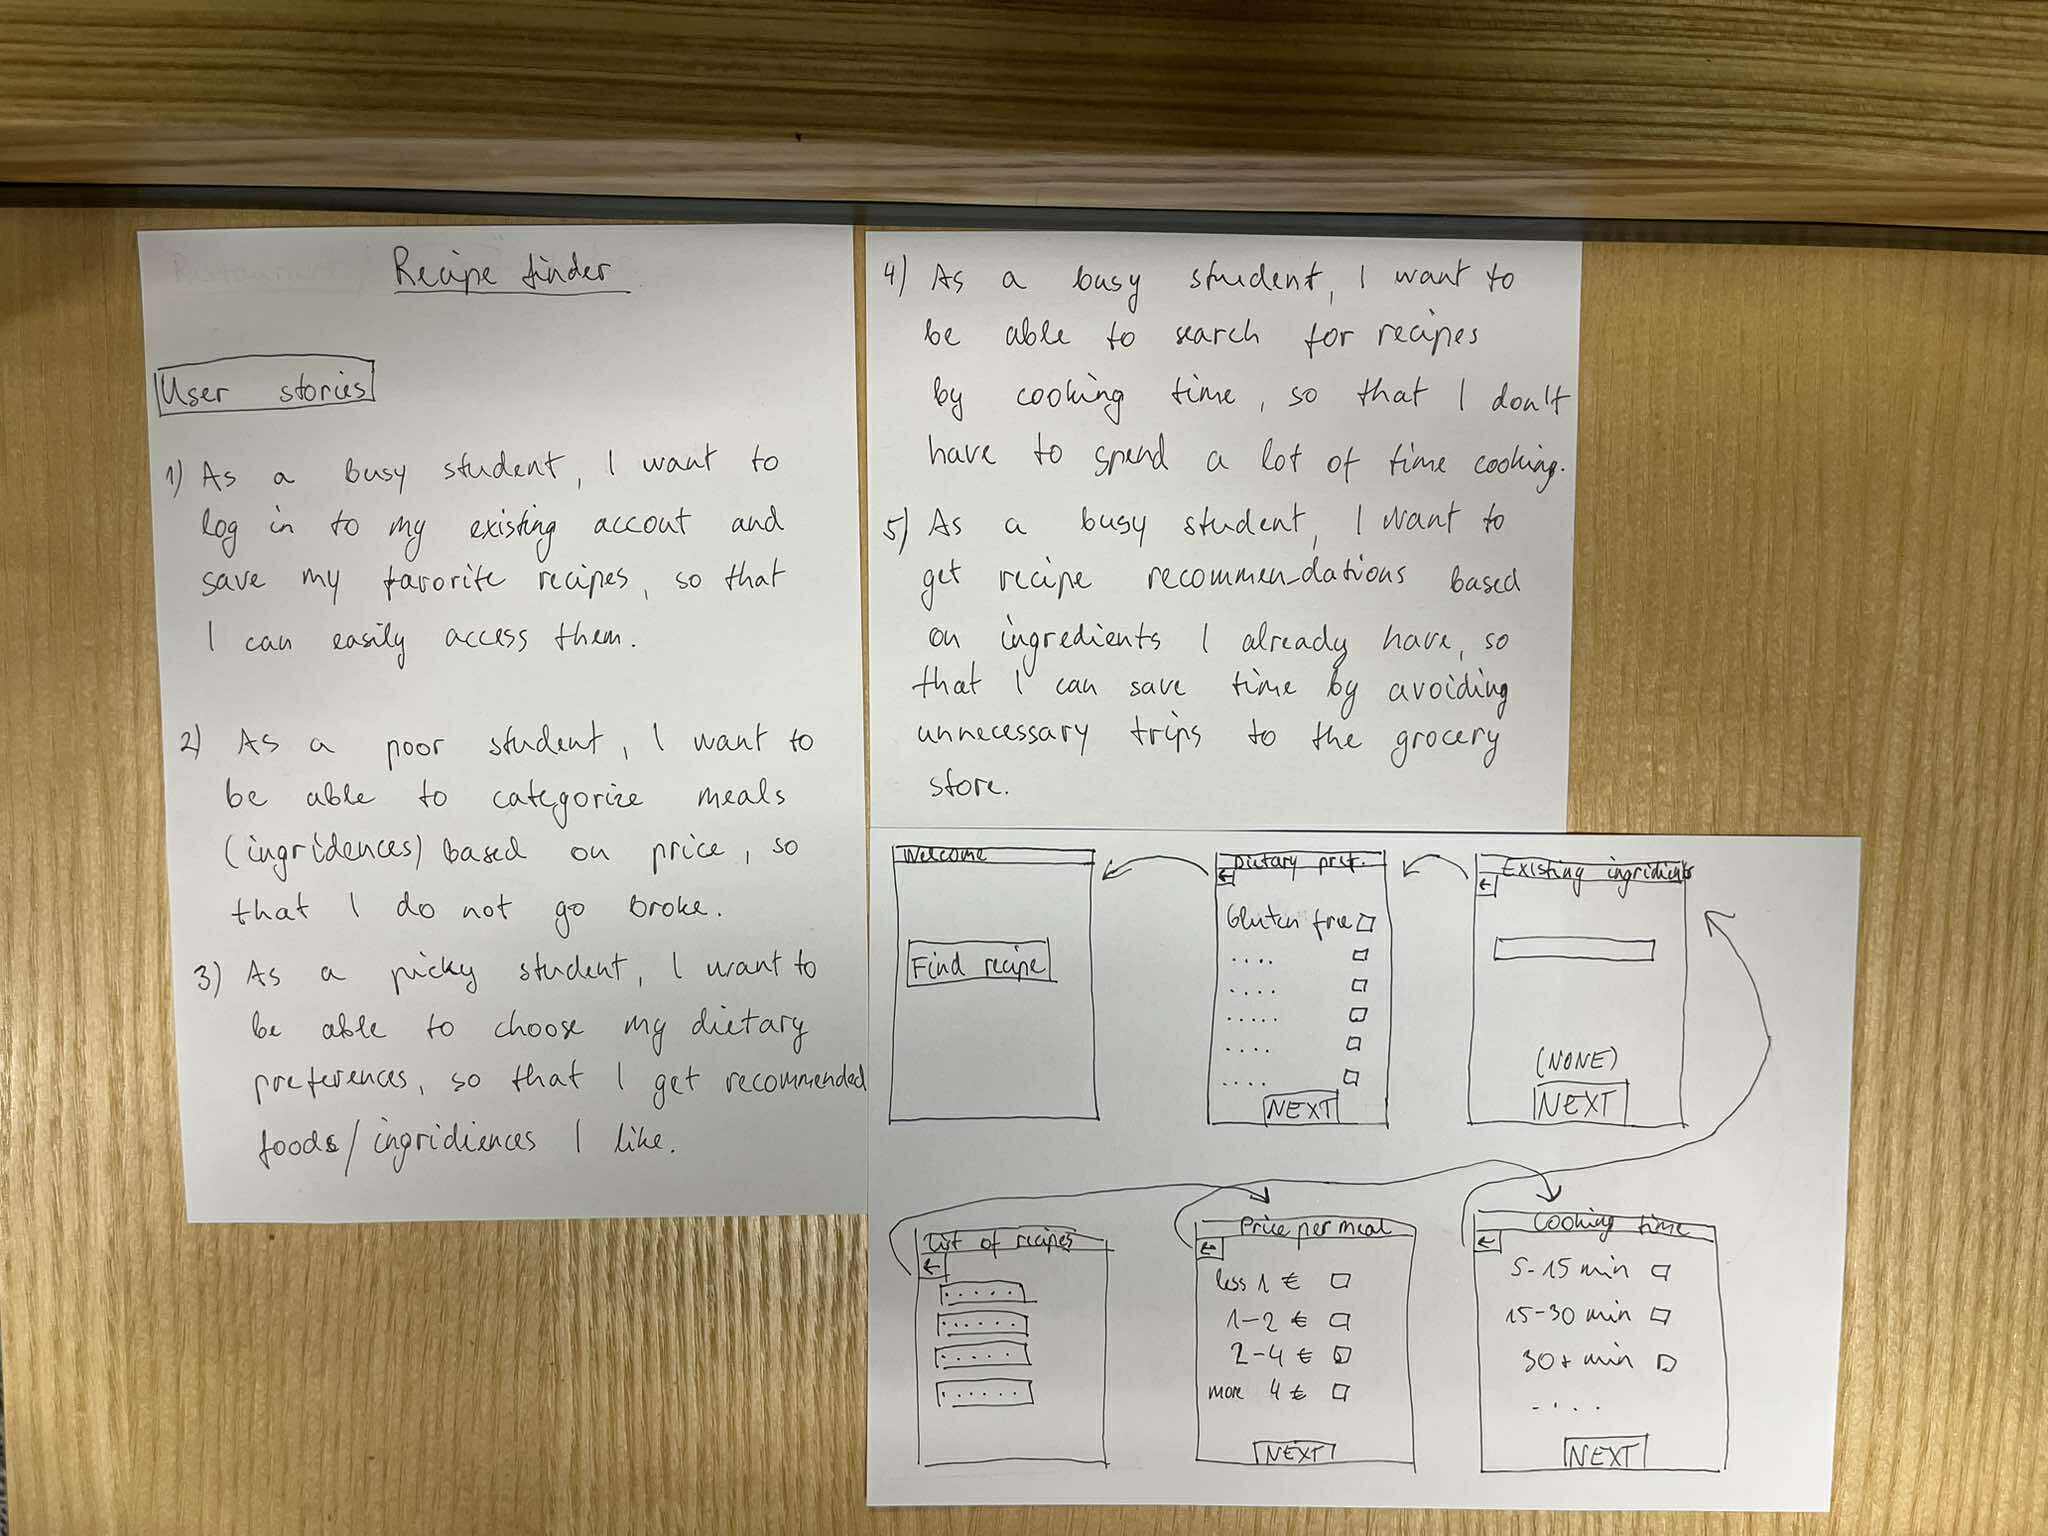 Recipe finder
User stories
1) As a busy student, I want to
log in to my existing accout and
save my favorite recipes, so that
I can easily access them.
2) As a poor student, I want to
be able to categorize meals
(ingridences) based on price, so
that I do not go broke.
3) As a picky student, I want to
be able to choose my dietary
preferences, so that I get recommended
foods/ingridiences I like.
4) As a busy student, I want to
be able to search for recipes
by cooking time, so that I don't
have to spend a lot of time cooking.
5) As a busy student, I want to
get recipe recommen-dations based
on ingredients I already have, so
that I can save time by avoiding
unnecessary trips to the grocery
store.
Welcome
Find recipe
Dietary pref.
←
Gluten free
....
....
.....
....
....
NEXT
Existing ingridients
←
(NONE)
NEXT
List of recipes
←
.....
......
.....
......
Price per meal
←
less 1 €
1-2 €
2-4 €
more 4 €
NEXT
Cooking time
←
5-15 min
15-30 min
30+ min
....
NEXT